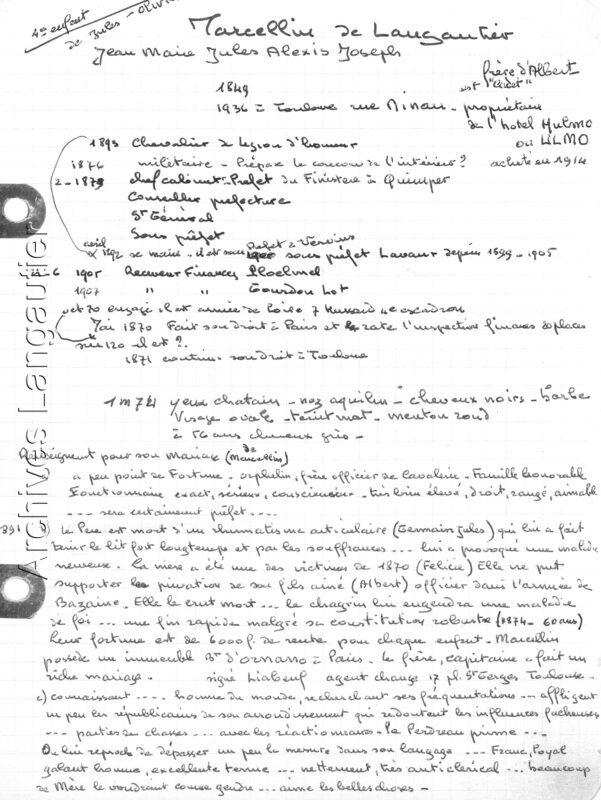 4e enfant
de Jules - Olivier
Marcellin de Langautier
Jean Marie Jules Alexis Joseph
frère d'Albert
est "cadet"
1849
1936 à Toulouse rue Ninau - propriétaire
de l'hotel Hulmo
ou ULMO
acheté en 1914
1893 Chevalier de legion d'honneur
1876 militaire - Prépare le concours de l'intérieur ?
2-1879 chef cabinet - Prefet du Finistere à Quimper
Conseiller prefecture
St Général
Sous préfet
avril 1892 se marie - il est sous prefet à Vervins
sous préfet Lavaur depuis 1899 - 1905
1905 Receveur Finances Ploelmel
1907 " " Gourdon Lot
oct 70 engagé il est armée de Loire 7 Hussard 4e escadron
Mai 1870 Fait son droit à Paris et rate l'inspection finances 20 places
sur 120 il est ?
1871 continue son droit à Toulouse
1m74 yeux chatain - nez aquilin - cheveux noirs - barbe
Visage ovale - teint mat - menton rond
à 56 ans cheveux gris -
Renseignement pour son mariage (de Marcellin)
a peu point de Fortune - orphelin, frère officier de Cavalerie - Famille honorable
Fonctionnaire exact, sérieux, consciencieux - très bien élevé, droit, rangé, aimable
---- sera certainement préfet ----
891 Le Pere est mort d'un rhumatisme articulaire (Germain Jules) qui lui a fait
tenir le lit fort longtemps et par les souffrances ... lui a provoqué une maladie
nerveuse. La mère a été une des victimes de 1870 (Felicie) Elle ne put
supporter la privation de son fils ainé (Albert) officier dans l'armée de
Bazaine. Elle le crut mort ... le chagrin lui engendra une maladie
de foi ... une fin rapide malgré sa constitution robuste (1874 - 60 ans)
Leur fortune est de 6000 f. de rente pour chaque enfant - Marcellin
possède un immeuble Bd d'Ornano à Paris. Le frère, capitaine a fait un
riche mariage. signé Liabeuf agent change 17 pl. St Georges Toulouse.
c) connaissant ---- homme du monde, recherchant ses fréquentations --- affligent
un peu les républicains de son arrondissement qui redoutent les influences facheuses
--- parties de chasses ... avec les réactionnaires - Le Perdreau prime ---
On lui reproche de dépasser un peu la mesure dans son langage --- Franc, loyal
galant homme, excellente tenue --- nettement, très anticlerical --- beaucoup
de Mère le voudrant comme gendre --- aime les belles choses -
Archives Langautier